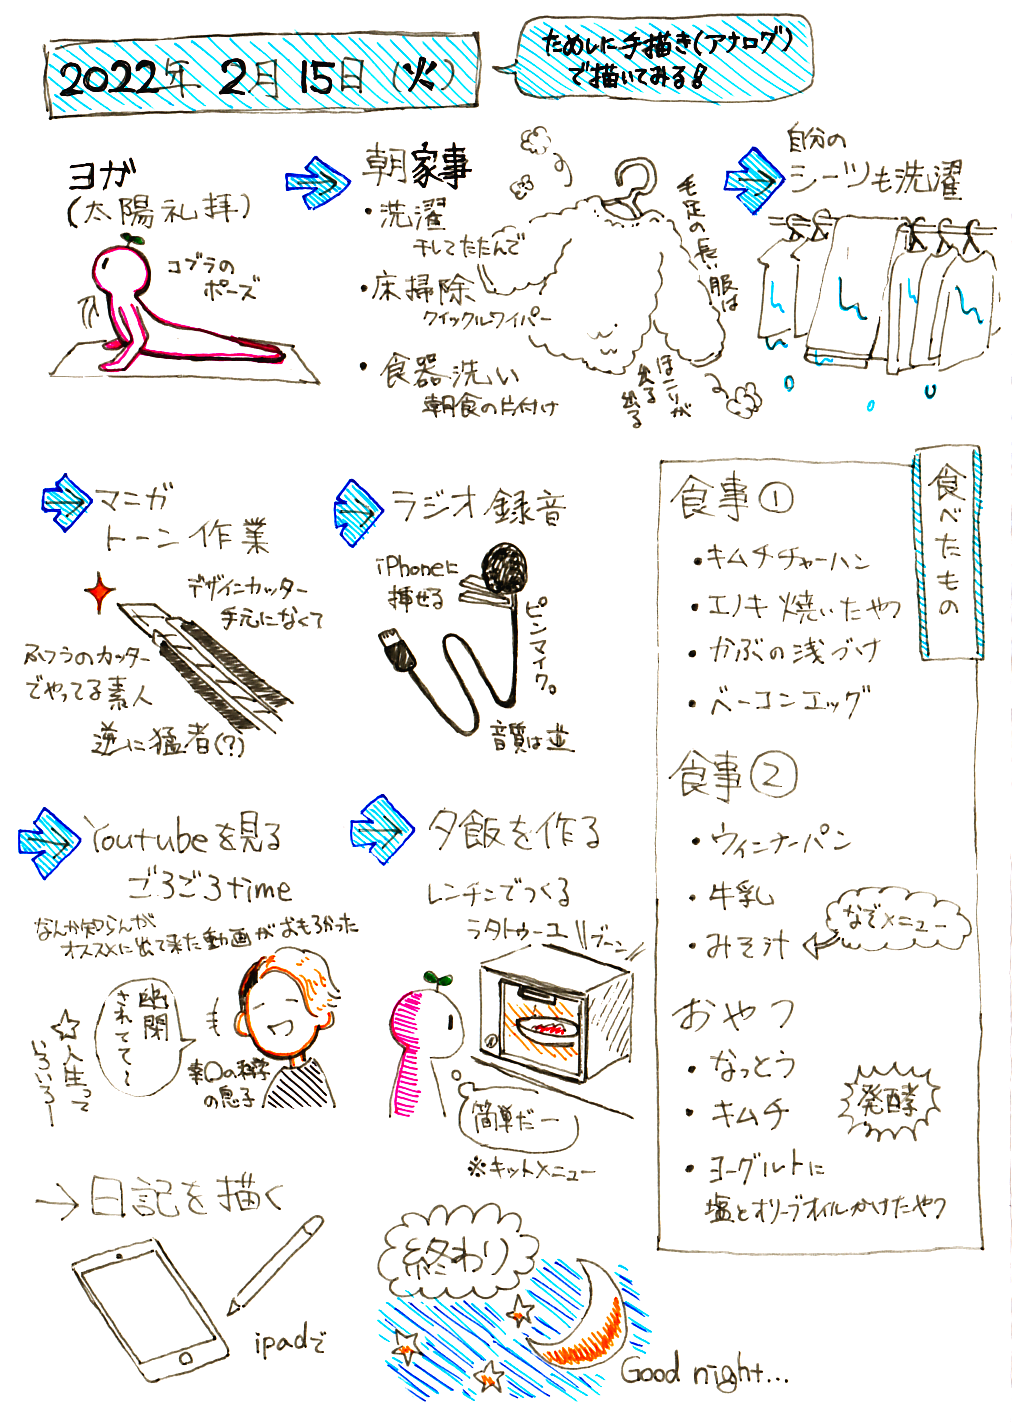 2022年 2月 15日 (火)
ためしに手描き(アナログ)
で描いてみる!
ヨガ
(太陽礼拝)
コブラの
ポーズ
朝家事
・洗濯
干してたたんで
・床掃除
クイックルワイパー
・食器洗い
朝食の片付け
毛足の長い服は
ほこりが
出る
出る
自分の
シーツも洗濯
マンガ
トーン作業
デザインカッター
手元になくて
ふつうのカッター
でやってる素人
逆に猛者(?)
ラジオ録音
iPhoneに
挿せる
ピンマイク。
音質は並
Youtubeを見る
ごろごろtime
なんか知らんが
オススメに出て来た動画がおもろかった
幽閉
されてて〜
☆人生って
いろいろー
幸〇の科学
の息子
夕飯を作る
レンチンでつくる
ラタトゥーユ
ブーン
簡単だー
※キットメニュー
→日記を描く
ipadで
終わり
Good night...
食べたもの
食事①
・キムチチャーハン
・エノキ焼いたやつ
・かぶの浅づけ
・ベーコンエッグ
食事②
・ウィンナーパン
・牛乳
・みそ汁
なぞメニュー
おやつ
・なっとう
・キムチ
発酵
・ヨーグルトに
塩とオリーブオイルかけたやつ